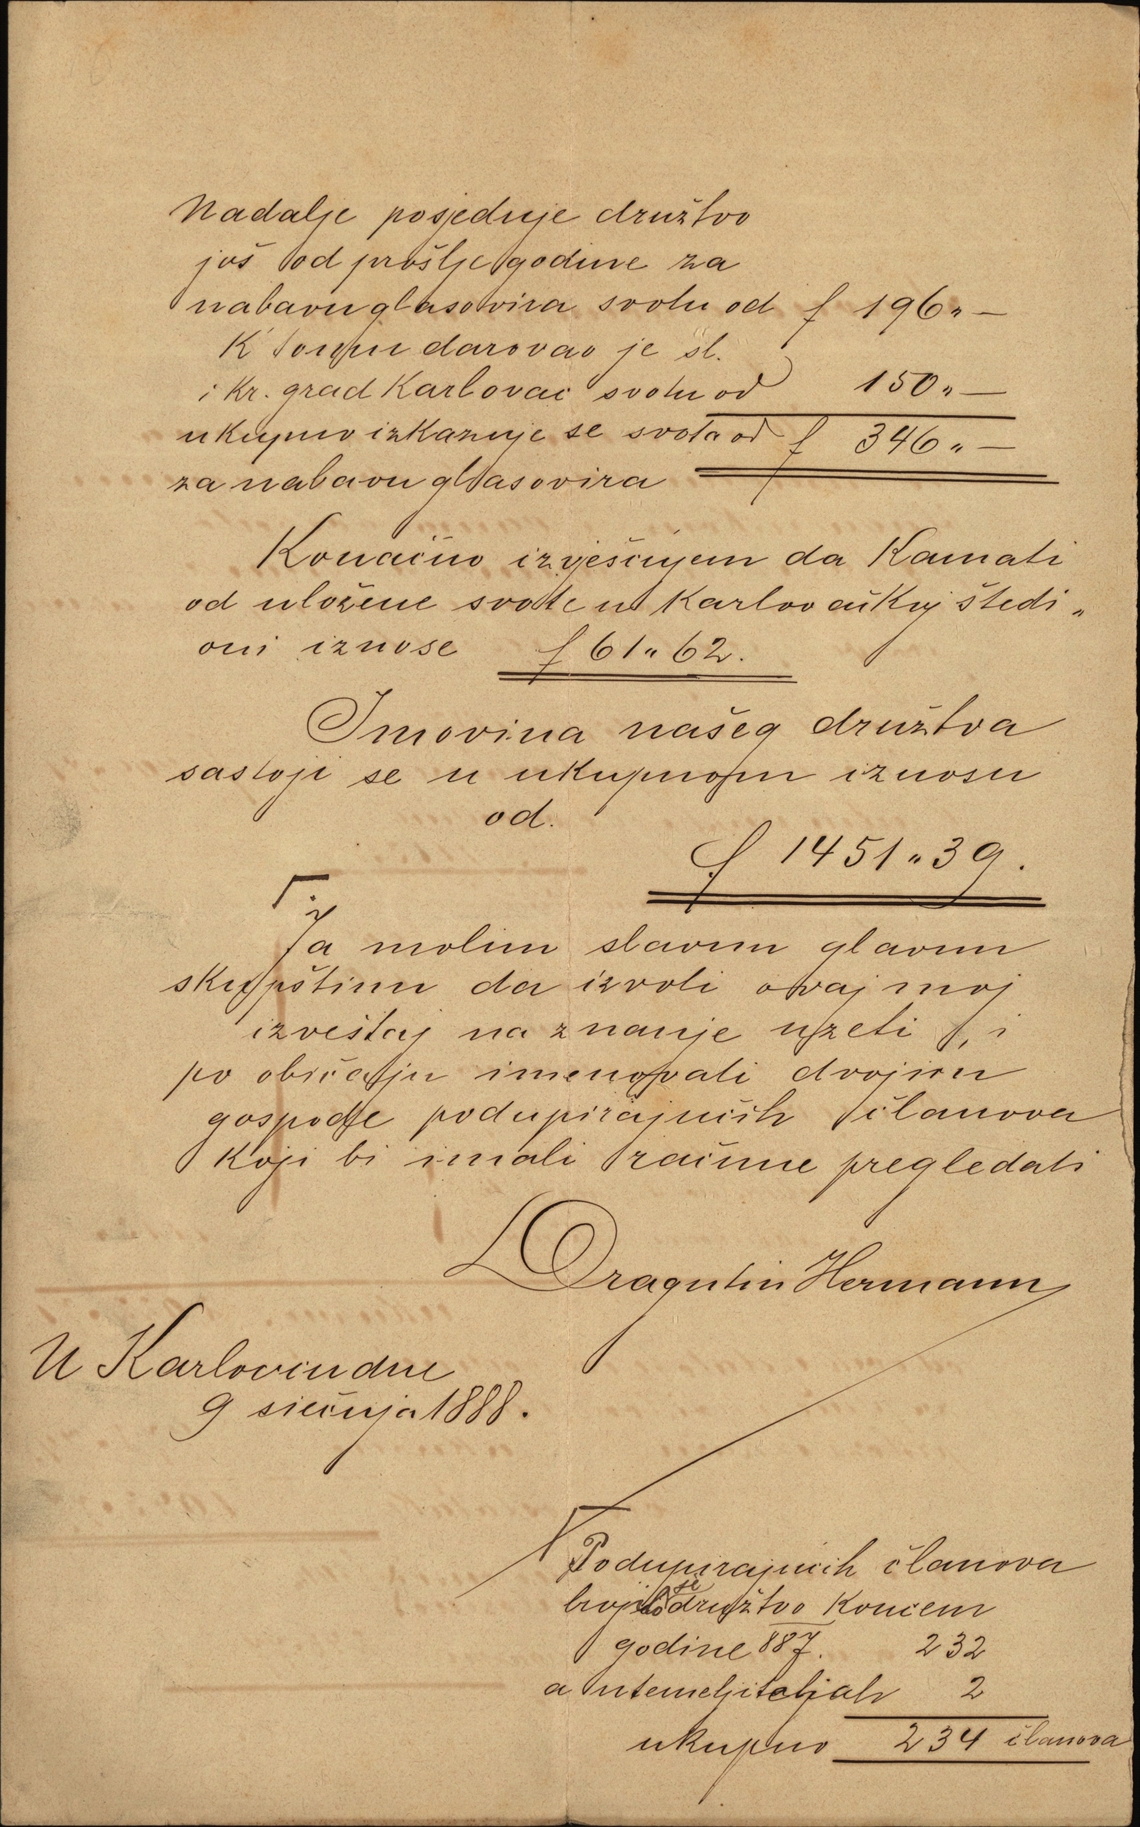 Nadalje posjeduje družtvo
još od prošlje godine za
nabavu glasovira svotu od f 196 „ —
K' tomu darovao je sl.
i kr. grad Karlovac svotu od 150 „ —
ukupno izkazuje se svota od f 346 „ —
za nabavu glasovira
Konačno izvješćujem da Kamati
od uložene svote u Karlovačkoj štedi „
oni iznose f 61 „ 62.
Imovina našeg družtva
sastoji se u ukupnom iznosu
od.
f 1451 „ 39.
Ja molim slavnu glavnu
skupštinu da izvoli ovaj moj
izveštaj na znanje uzeti, i
po običaju imenovati dvojicu
gospode podupirajućih članova
Koji bi imali račune pregledati
Dragutin Hermann
U Karlovcu dne
9 siečnja 1888.
Podupirajućih članova
se
družtvo Koncem
godine 887. 232
a utemeljiteljah 2
ukupno 234 članova